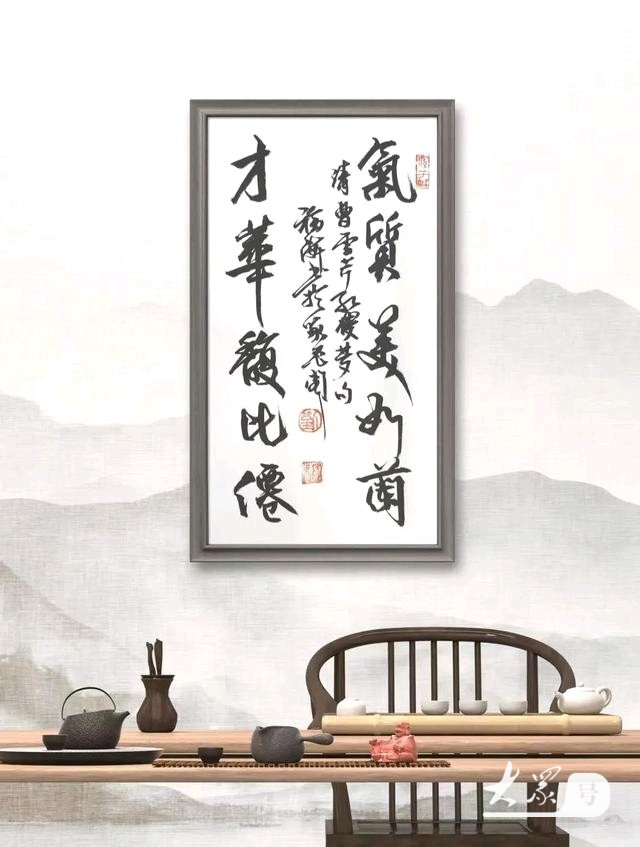 氣質美如蘭
清曹雪芹紅樓夢句
書於
才華馥比僊
大眾号